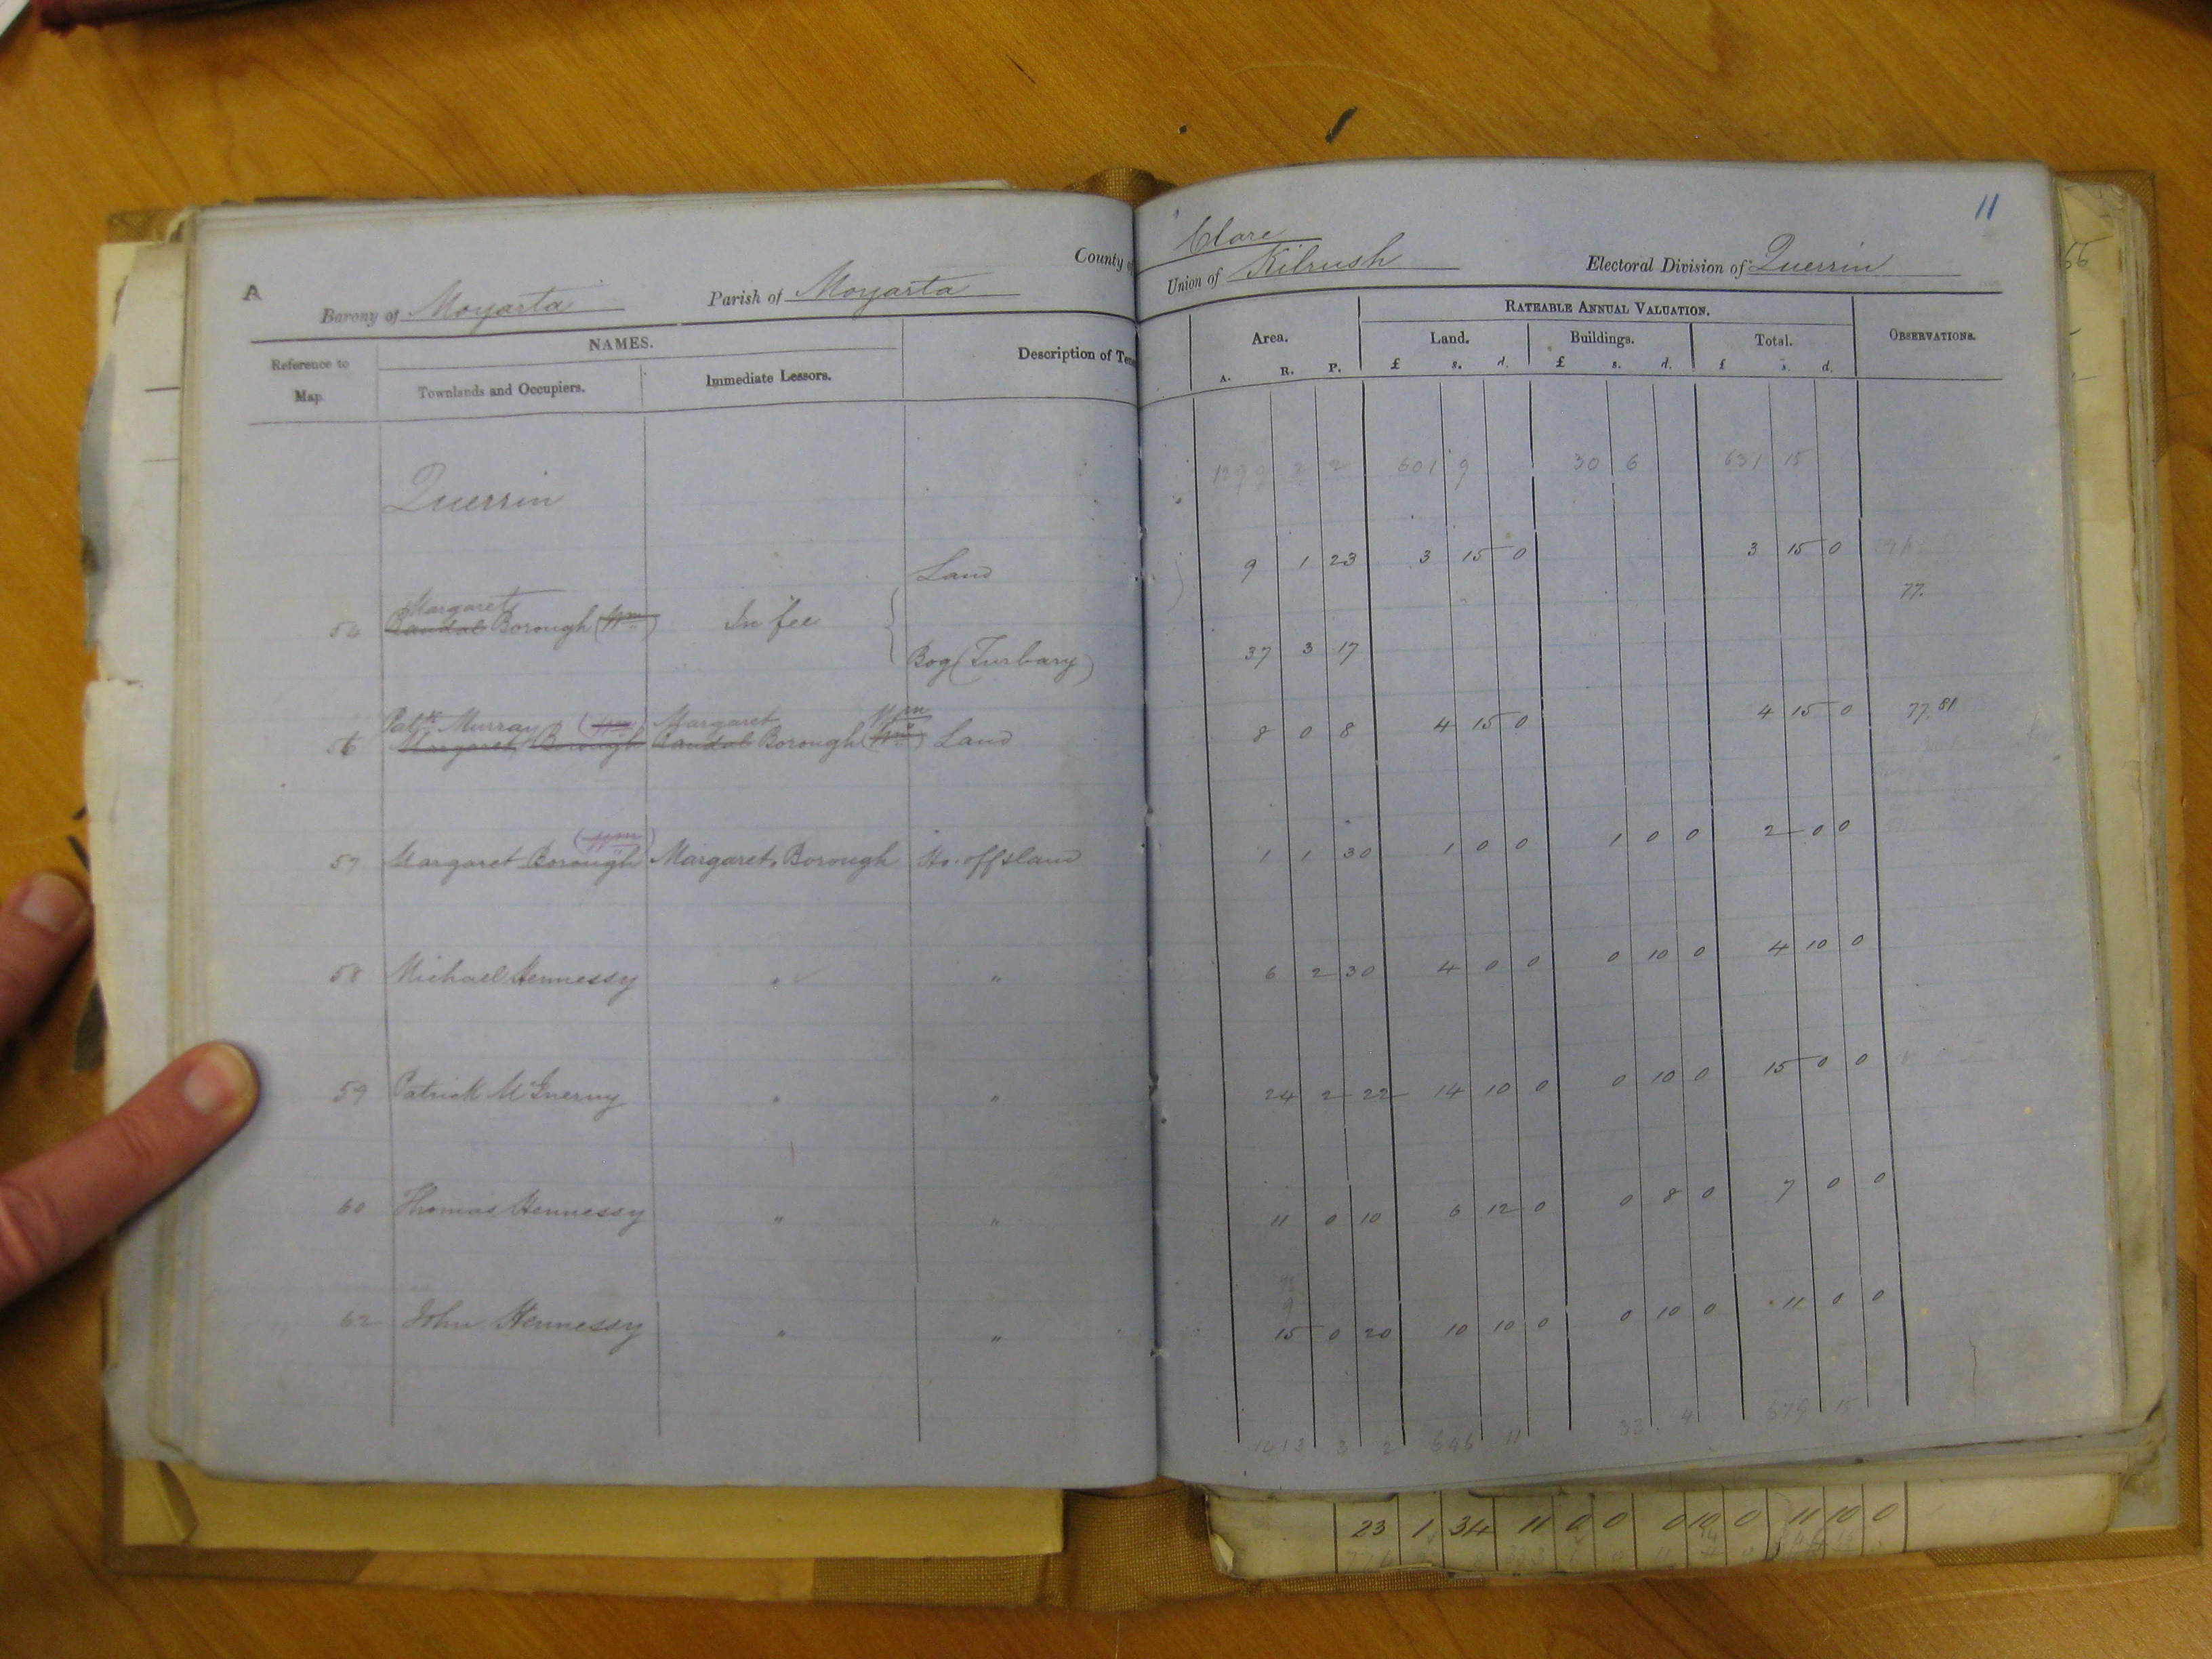 11
A
County of Clare
Barony of Moyarta Parish of Moyarta Union of Kilrush Electoral Division of Querrin
Reference to Map. NAMES. Description of Tene Area. RATEABLE ANNUAL VALUATION. OBSERVATIONS.
Townlands and Occupiers. Immediate Lessors. Land. Buildings. Total.
A. R. P. £ s. d. £ s. d. £ s. d.
1299 2 2 601 9 30 6 631 15
Querrin
Land 9 1 23 3 15 0 3 15 0
77.
Margaret
54 Randal Borough (Wm) In fee
Bog (Turbary) 37 3 17
Patk Murray (Wm) Margaret Wm
56 Margaret Borough Randal Borough (Wm) Land 8 0 8 4 15 0 4 15 0 77.81
(Wm)
57 Margaret Borough Margaret Borough Ho. offs land 1 1 30 1 0 0 1 0 0 2 0 0
58 Michael Hennessy " " 6 2 30 4 0 0 0 10 0 4 10 0
59 Patrick McInerny " " 24 2 22 14 10 0 0 10 0 15 0 0
60 Thomas Hennessy " " 11 0 10 6 12 0 0 8 0 7 0 0
62 John Hennessy " " 15 0 20 10 10 0 0 10 0 11 0 0
1413 3 2 646 11 33 4 679 15
23 1 34 11 0 0 0 10 0 11 10 0